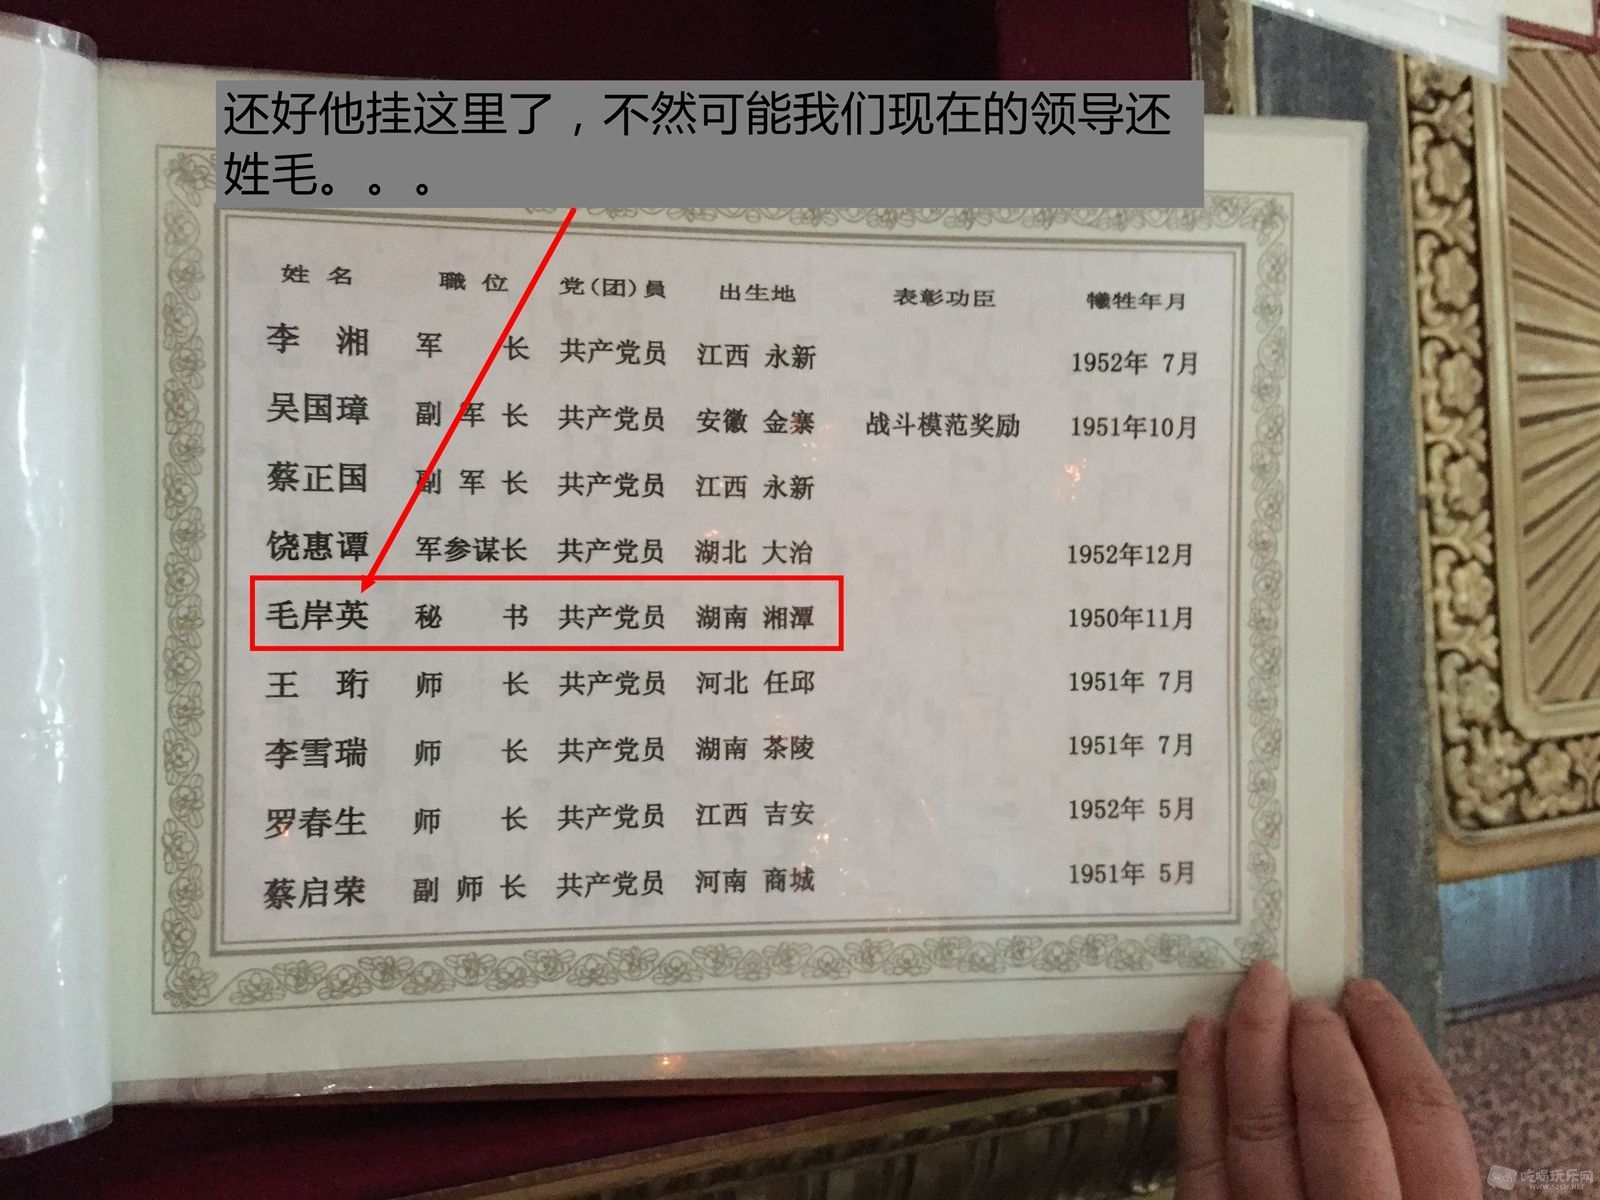 还好他挂这里了，不然可能我们现在的领导还
姓毛。。。
姓 名 職 位 党(团)員 出生地 表彰功臣 犧牲年月
李 湘 军 长 共产党员 江西 永新 1952年 7月
吴国璋 副 军 长 共产党员 安徽 金寨 战斗模范奖励 1951年10月
蔡正国 副 军 长 共产党员 江西 永新
饶惠谭 军参谋长 共产党员 湖北 大治 1952年12月
毛岸英 秘 书 共产党员 湖南 湘潭 1950年11月
王 珩 师 长 共产党员 河北 任邱 1951年 7月
李雪瑞 师 长 共产党员 湖南 茶陵 1951年 7月
罗春生 师 长 共产党员 江西 吉安 1952年 5月
蔡启荣 副 师 长 共产党员 河南 商城 1951年 5月
吃喝玩乐网